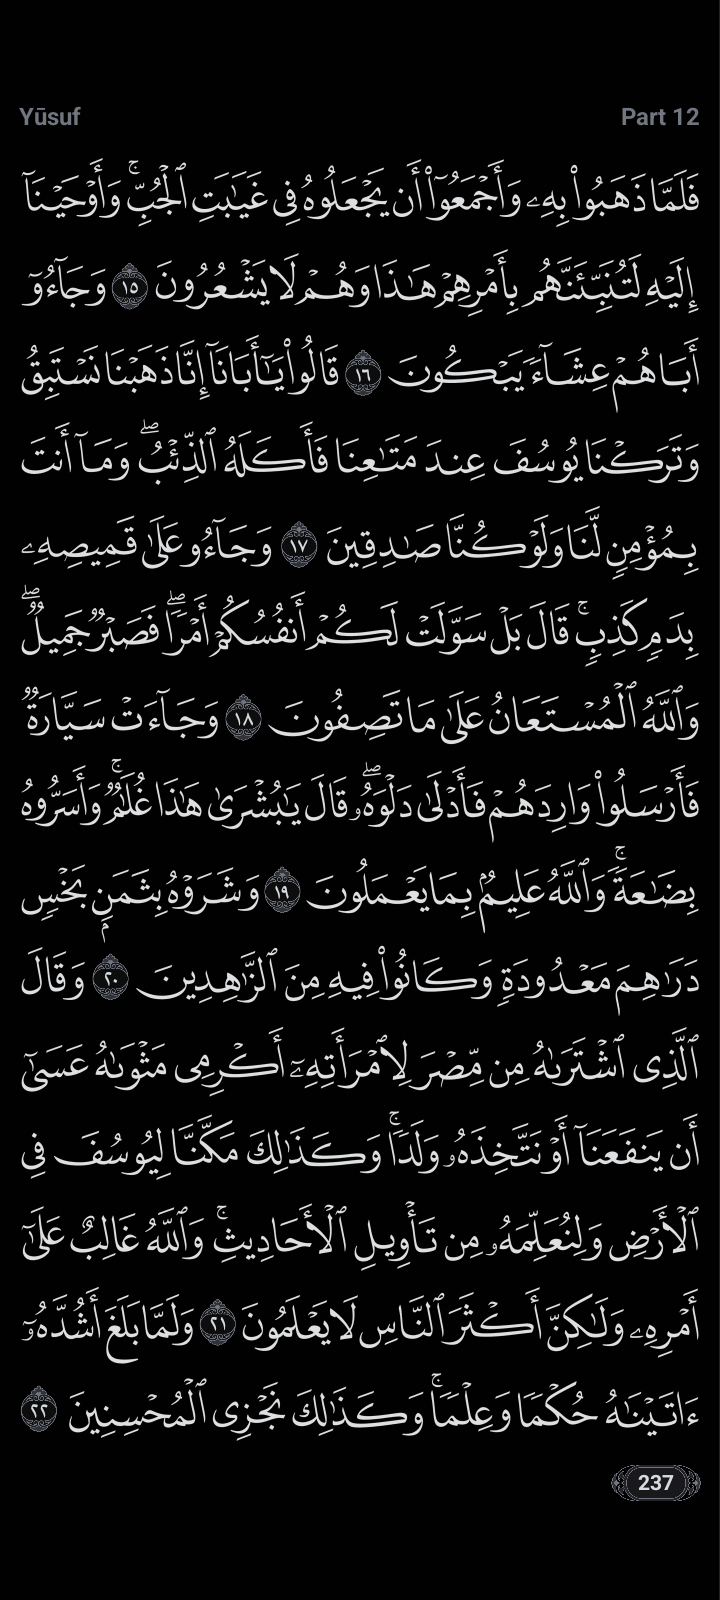 Yūsuf
Part 12
فَلَمَّا ذَهَبُوا۟ بِهِۦ وَأَجْمَعُوٓا۟ أَن يَجْعَلُوهُ فِى غَيَـٰبَتِ ٱلْجُبِّ ۚ وَأَوْحَيْنَآ
إِلَيْهِ لَتُنَبِّئَنَّهُم بِأَمْرِهِمْ هَـٰذَا وَهُمْ لَا يَشْعُرُونَ ١٥ وَجَآءُوٓ
أَبَاهُمْ عِشَآءً يَبْكُونَ ١٦ قَالُوا۟ يَـٰٓأَبَانَآ إِنَّا ذَهَبْنَا نَسْتَبِقُ
وَتَرَكْنَا يُوسُفَ عِندَ مَتَـٰعِنَا فَأَكَلَهُ ٱلذِّئْبُ ۖ وَمَآ أَنتَ
بِمُؤْمِنٍ لَّنَا وَلَوْ كُنَّا صَـٰدِقِينَ ١٧ وَجَآءُو عَلَىٰ قَمِيصِهِۦ
بِدَمٍ كَذِبٍ ۚ قَالَ بَلْ سَوَّلَتْ لَكُمْ أَنفُسُكُمْ أَمْرًا ۖ فَصَبْرٌ جَمِيلٌ ۖ
وَٱللَّهُ ٱلْمُسْتَعَانُ عَلَىٰ مَا تَصِفُونَ ١٨ وَجَآءَتْ سَيَّارَةٌ
فَأَرْسَلُوا۟ وَارِدَهُمْ فَأَدْلَىٰ دَلْوَهُۥ ۖ قَالَ يَـٰبُشْرَىٰ هَـٰذَا غُلَـٰمٌ ۚ وَأَسَرُّوهُ
بِضَـٰعَةً ۚ وَٱللَّهُ عَلِيمٌۢ بِمَا يَعْمَلُونَ ١٩ وَشَرَوْهُ بِثَمَنٍۭ بَخْسٍ
دَرَٰهِمَ مَعْدُودَةٍ وَكَانُوا۟ فِيهِ مِنَ ٱلزَّٰهِدِينَ ٢٠ وَقَالَ
ٱلَّذِى ٱشْتَرَىٰهُ مِن مِّصْرَ لِٱمْرَأَتِهِۦٓ أَكْرِمِى مَثْوَىٰهُ عَسَىٰٓ
أَن يَنفَعَنَآ أَوْ نَتَّخِذَهُۥ وَلَدًا ۚ وَكَذَٰلِكَ مَكَّنَّا لِيُوسُفَ فِى
ٱلْأَرْضِ وَلِنُعَلِّمَهُۥ مِن تَأْوِيلِ ٱلْأَحَادِيثِ ۚ وَٱللَّهُ غَالِبٌ عَلَىٰٓ
أَمْرِهِۦ وَلَـٰكِنَّ أَكْثَرَ ٱلنَّاسِ لَا يَعْلَمُونَ ٢١ وَلَمَّا بَلَغَ أَشُدَّهُۥٓ
ءَاتَيْنَـٰهُ حُكْمًا وَعِلْمًا ۚ وَكَذَٰلِكَ نَجْزِى ٱلْمُحْسِنِينَ ٢٢
237